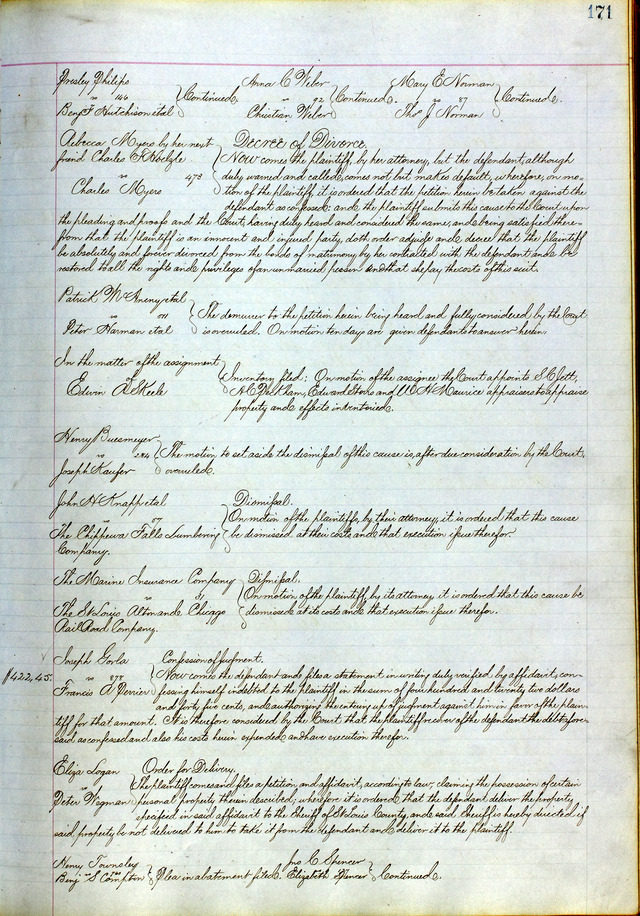 171
Presley Philips
vs 144 } Continued.
Benj F Hutchison et al
Anna C Weber
vs 92 } Continued.
Christian Weber
Mary E Norman
vs 87 } Continued.
Thos J Norman
Rebecca Myers by her next Decree of Divorce.
friend Charles F Now comes the plaintiff, by her attorney, but the defendant, although
vs 473 duly warned and called, comes not but makes default, wherefore, on mo-
Charles Myers tion of the plaintiff, it is ordered that the petition herein be taken against the
defendant as confessed: and the plaintiff submits the cause to the Court upon
the pleading and proofs and the Court, having duly heard and considered the same, and being satisfied there-
from that the plaintiff is an innocent and injured party, doth order adjudge and decree that the plaintiff
be absolutely and forever divorced from the bonds of matrimony by her contracted with the defendant and be
restored to all the rights and privileges of an unmarried person and that she pay the costs of this suit.
Patrick et al
vs The demurrer to the petition herein being heard and fully considered by the Court
Peter Harman et al is overruled. On motion ten days are given defendants to answer herein.
In the matter of the assignment
of Inventory filed: On motion of the assignee the Court appoints S Clett,
Edwin A Skeele Edward and U S H Maurice appraisers to appraise
property and effects inventoried.
Henry Buesmeyer
vs 284 The motion to set aside the dismissal of this cause is, after due consideration by the Court,
Joseph Kaufer overruled.
John H Knapp et al Dismissal.
vs 57 On motion of the plaintiffs, by their attorney, it is ordered that this cause
The Chippewa Falls Lumbering be dismissed at their costs and that execution issue therefor.
Company.
The Marine Insurance Company Dismissal.
vs 51 On motion of the plaintiff, by its attorney, it is ordered that this cause be
The St Louis Alton and Chicago dismissed at its costs and that execution issue therefor.
Rail Road Company.
Joseph Gorla Confession of Judgment.
$422,45. vs 878 Now comes the defendant and files a statement in writing duly verified by affidavit, con-
Francis A Verrier fessing himself indebted to the plaintiff in the sum of four hundred and twenty two dollars
and forty five cents, and authorizing the entering up of judgment against him in favor of the plain-
tiff for that amount. It is therefore considered by the Court that the plaintiff recover of the defendant the debt afore-
said as confessed and also his costs herein expended and have execution therefor.
Eliza Logan Order for Delivery.
vs The plaintiff comes and files a petition and affidavit, according to law, claiming the possession of certain
Peter Wegman personal property therein described; wherefore it is ordered that the defendant deliver the property
specified in said affidavit to the Sheriff of St Louis County, and said Sheriff is hereby directed, if
said property be not delivered to him to take it from the defendant and deliver it to the plaintiff.
Henry Townsley
vs } Plea in abatement filed.
Benj S Compton
Jno C Spencer
vs } Continued.
Elizabeth Spencer